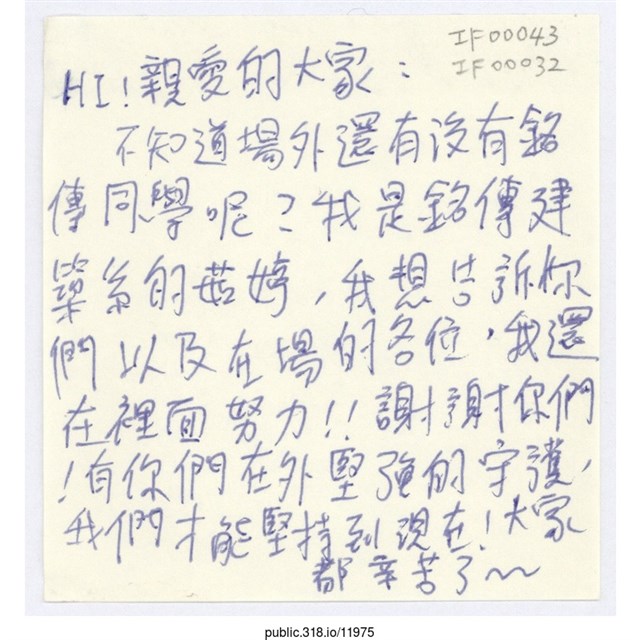 IF00043
IF00032
HI!親愛的大家:
不知道場外還有沒有銘
傳同學呢?我是銘傳建
築系的茹婷,我想告訴你
們以及在場的各位,我還
在裡面努力!!謝謝你們
!有你們在外堅強的守護,
我們才能堅持到現在!大家
都幸苦了~~
public.318.io/11975